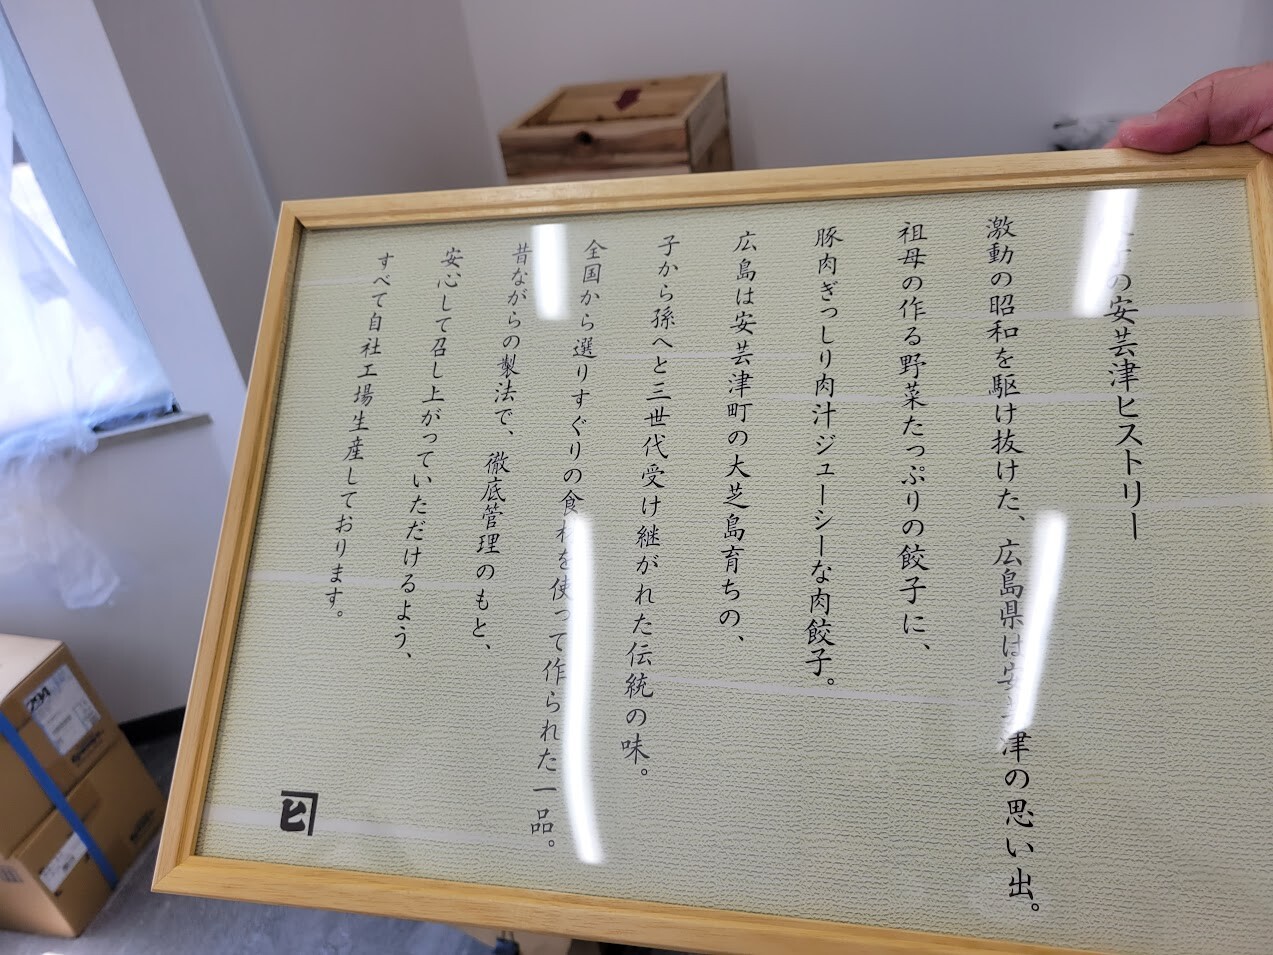 の安芸津ヒストリー
激動の昭和を駆け抜けた、広島県は安芸津の思い出。
祖母の作る野菜たっぷりの餃子に、
豚肉ぎっしり肉汁ジューシーな肉餃子。
広島は安芸津町の大芝島育ちの、
子から孫へと三世代受け継がれた伝統の味。
全国から選りすぐりの食材を使って作られた一品。
昔ながらの製法で、徹底管理のもと、
安心して召し上がっていただけるよう、
すべて自社工場生産しております。
ヒ